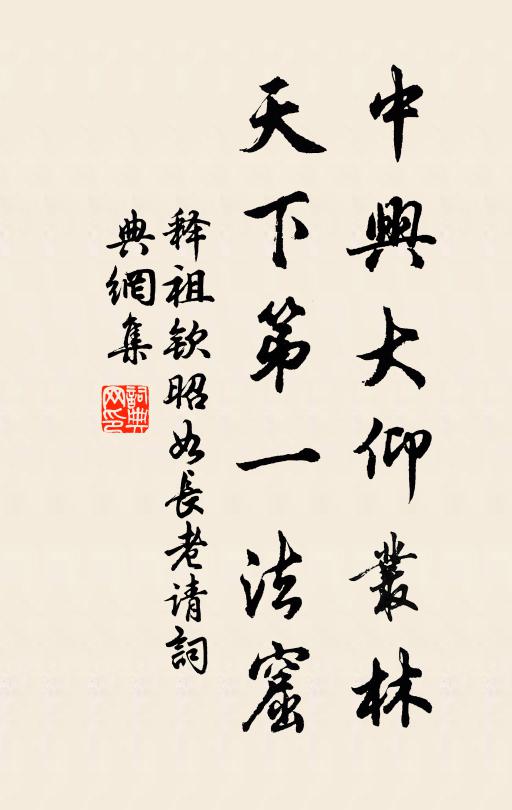 中興大仰叢林
天下第一法窟
释祖欽昭如長老请詞
典網集
詞典网印